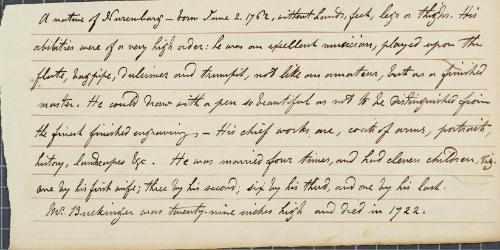 A native of Nuremburg – born June 2. 1762, without hands, feet, legs or thighs. His
abilities were of a very high order: he was an excellent musician, played upon the
flute, bagpipe, dulcimer and trumpet, not like an amateur, but as a finished
master. He could draw with a pen so beautiful as not to be distinguished from
the finest finished engraving; – His chief works are, coats of arms, portraits,
history, landscapes &c. He was married four times, and had eleven children, viz.
one by his first wife; three by his second; six by his third, and one by his last.
Mr. Buckinger was twenty-nine inches high and died in 1722.